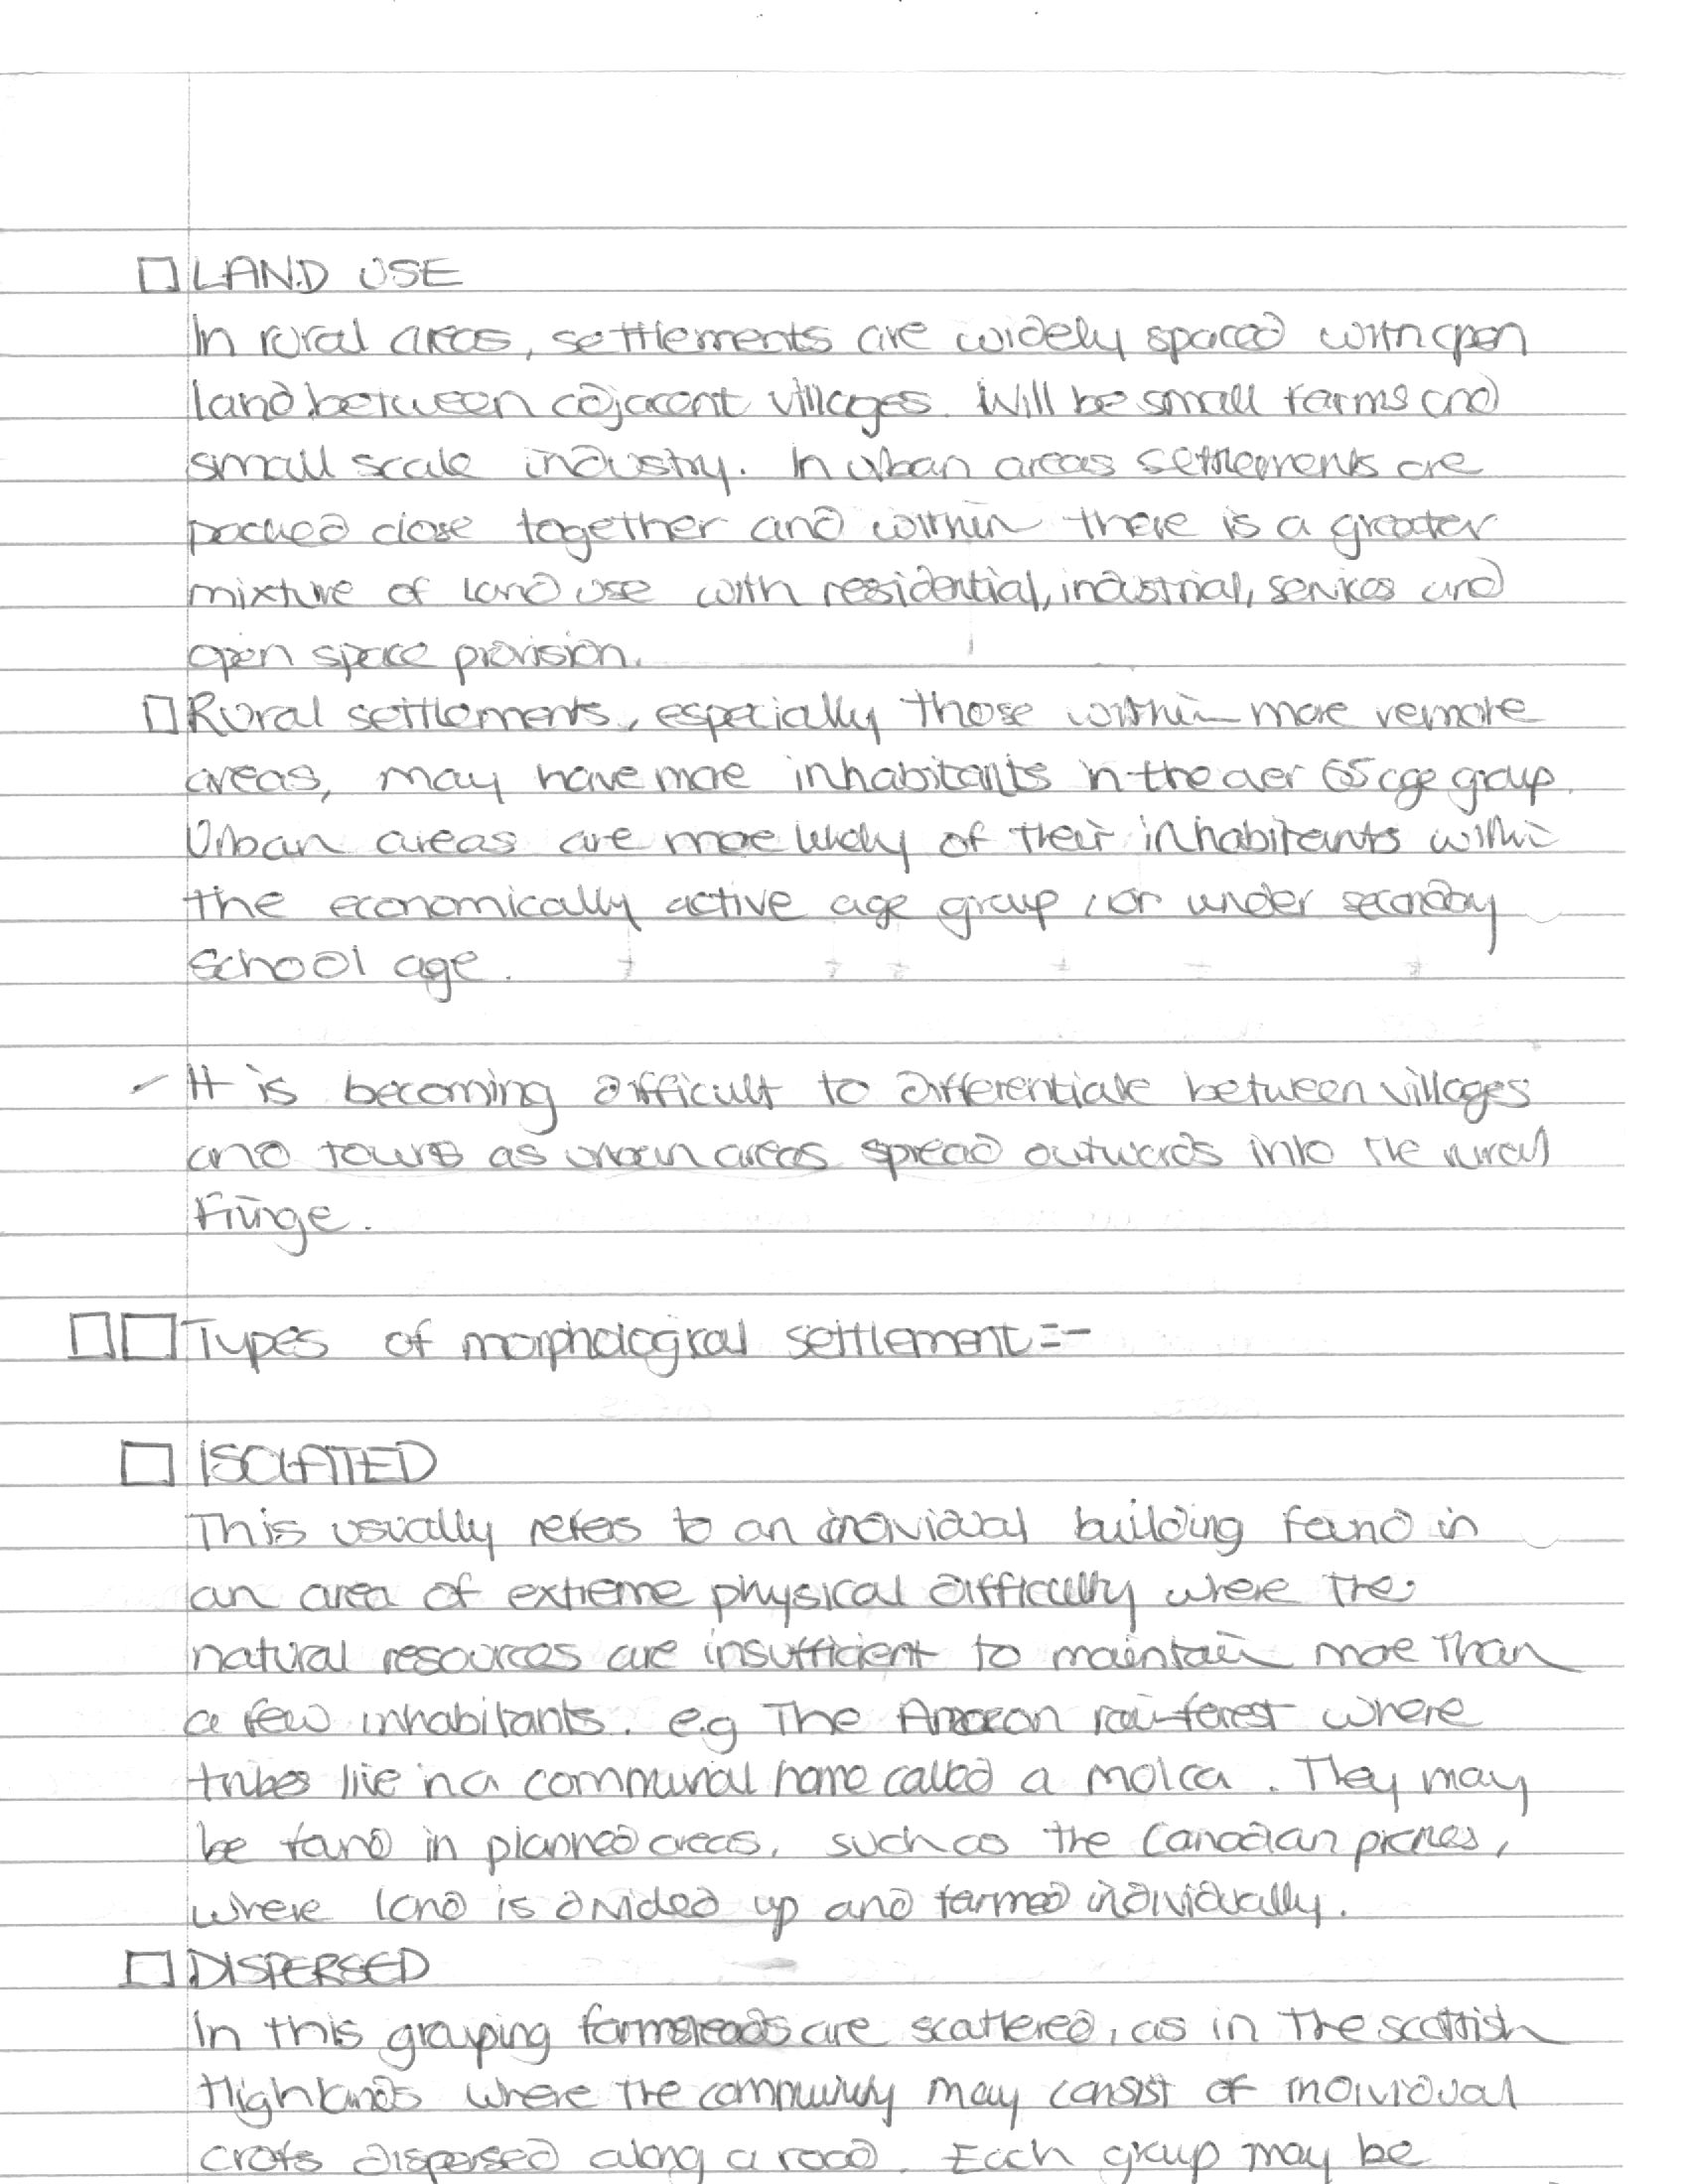 □ LAND USE
In rural areas, settlements are widely spaced with open
land between adjacent villages. Will be small farms and
small scale industry. In urban areas settlements are
packed close together and within there is a greater
mixture of land use with residential, industrial, services and
open space provision.
□ Rural settlements, especially those within more remote
areas, may have more inhabitants in the over 65 age group.
Urban areas are more likely of their inhabitants within
the economically active age group, or under secondary
school age.
- It is becoming difficult to differentiate between villages
and towns as urban areas spread outwards into the rural
fringe.
□□ Types of morphological settlement :-
□ ISOLATED
This usually refers to an individual building found in
an area of extreme physical difficulty where the
natural resources are insufficient to maintain more than
a few inhabitants. e.g The Amazon rainforest where
tribes live in a communal home called a molca. They may
be found in planned areas, such as the Canadian
where land is divided up and farmed individually.
□ DISPERSED
In this grouping farmsteads are scattered, as in the scottish
Highlands where the community may consist of individual
crofts dispersed along a road. Each group may be